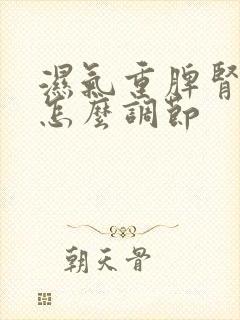 濕氣重脾腎
怎麼調節
朝天骨